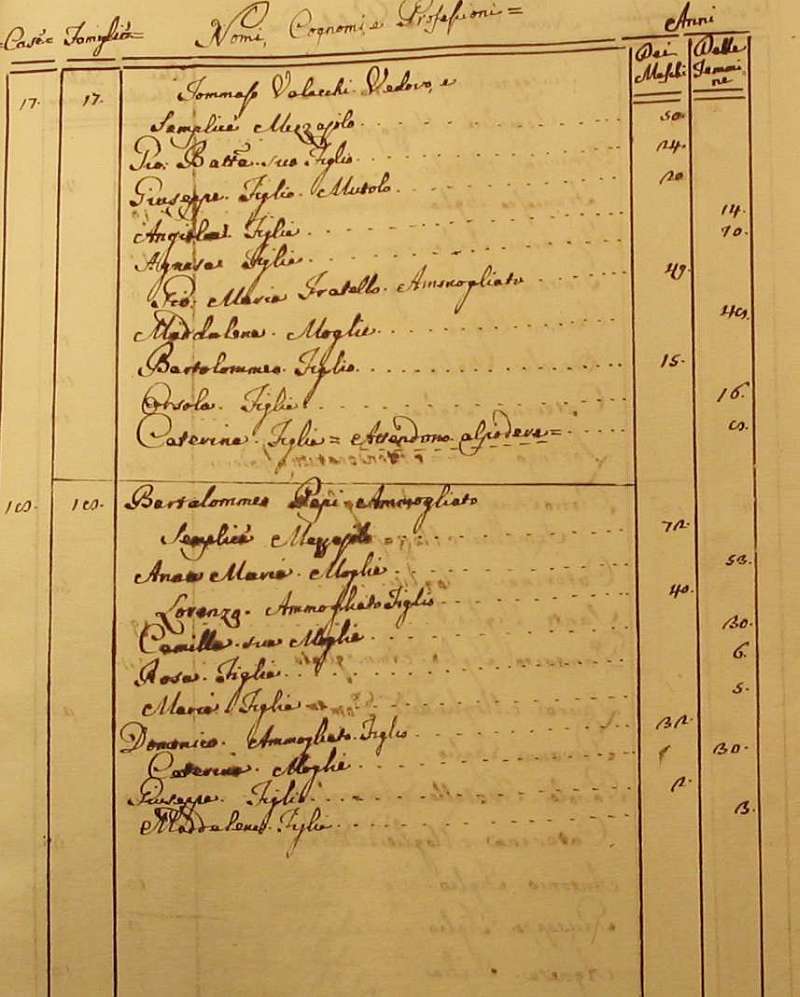 =Case= Famiglie= Nomi, Cognomi, e Professioni= Anni
Dei Maschi Delle Femmine
17. 17. Tommaso Valecchi Vedovo, e
Semplice Mezzajolo 50.
Gio: Batta suo Figlio 24.
Giuseppe Figlio Mutolo 20
Angiola Figlia 14.
Agnesa Figlia 10.
Gio: Maria Fratello Ammogliato 49.
Maddalena Moglie 48.
Bartolommeo Figlio 15.
Orsola Figlia 16.
Caterina Figlia = Attendono al Podere = 8.
18. 18. Bartolommeo Papi Ammogliato
Semplice Mezzajolo 72.
Anna Maria Moglie 58.
Lorenzo Ammogliato Figlio 40.
Camilla sua Moglie 30.
Rosa Figlia 6.
Maria Figlia 5.
Domenico Ammogliato Figlio 32.
Caterina Moglie 30.
Giuseppe Figlio 2.
Maddalena Figlia 3.